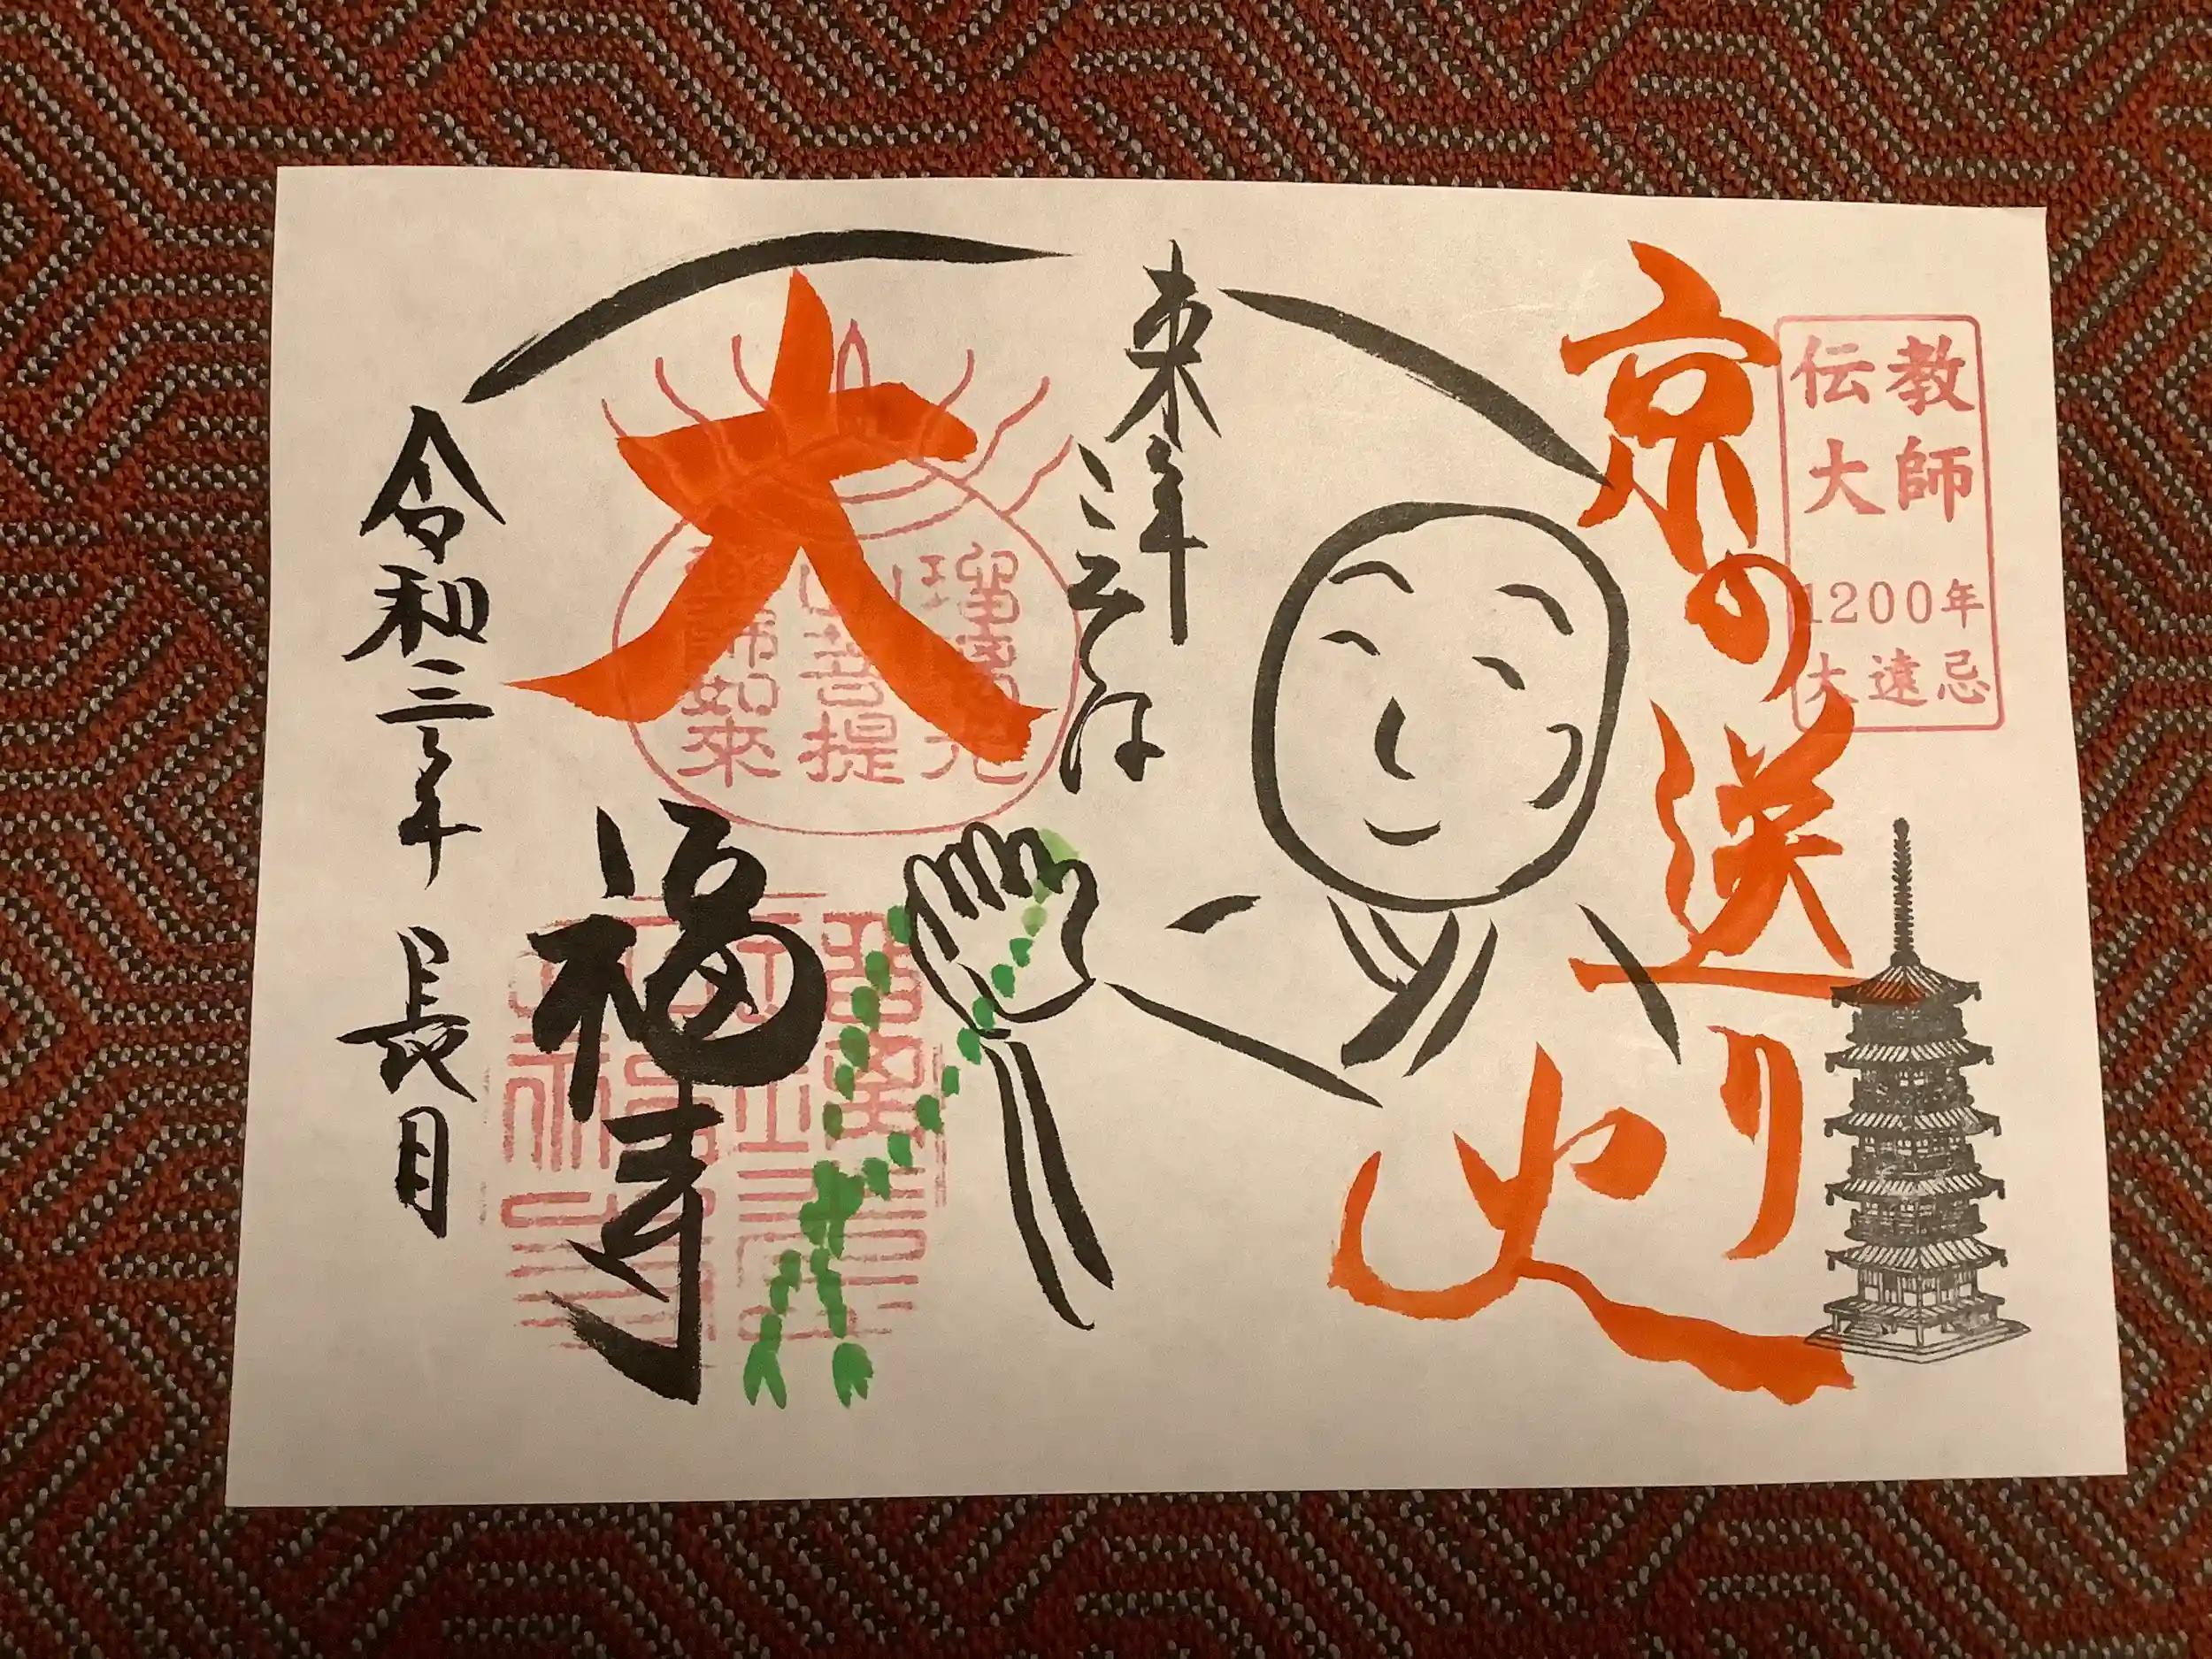 伝教
大師
1200年
大遠忌
京の送り火
来年こそは
大
瑠璃光
菩提
藥師如來
福寺
令和三年 長月